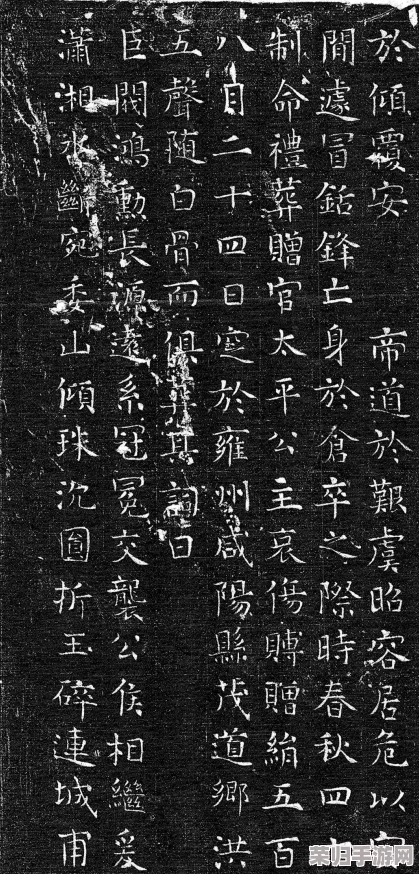 於傾覆安 帝道於艱虞昭容居危以安
間遽冒銛鋒亡身於倉卒之際時春秋四十
制命禮葬贈官太平公主哀傷賻贈絹五百
八月二十四日窆於雍州咸陽縣茂道鄉洪
五聲隨白骨而俱葬其詞曰
巨閥鴻勳長源遠系冠冕交襲公侯相繼爰
瀟湘水斷宛委山傾珠沉圓折玉碎連城甫
荣归手游网